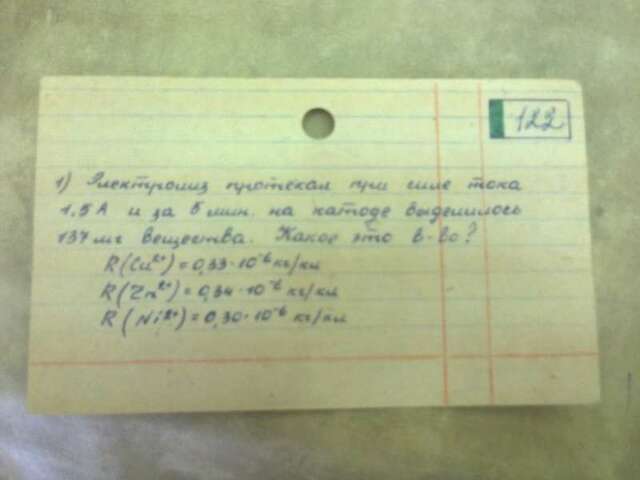 122
1) Электролиз протекал при силе тока
1,5 А и за 5 мин. на катоде выделилось
137 мг вещества. Какое это в-во?
R(Cu²⁺) = 0,33·10⁻⁶ кг/кл
R(Zn²⁺) = 0,34·10⁻⁶ кг/кл
R(Ni²⁺) = 0,30·10⁻⁶ кг/кл